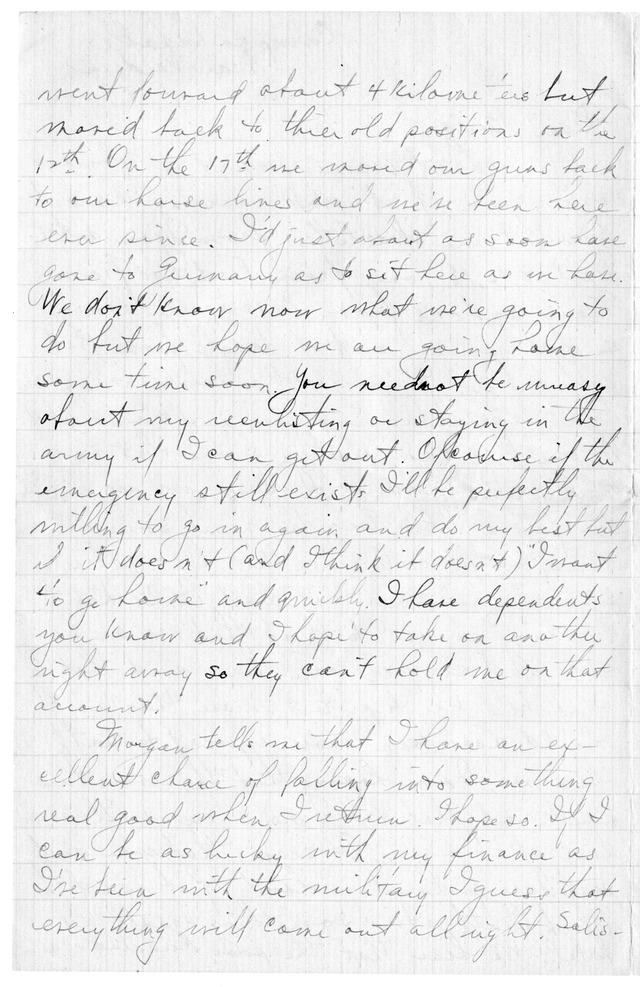 went forward about 4 kilometers but
moved back to thier old positions on the
12th. On the 17th we moved our guns back
to our horse lines and we've been here
ever since. I'd just about as soon have
gone to Germany as to sit here as we have.
We don't know now what we're going to
do but we hope we are going home
some time soon. You neednot be uneasy
about my reenlisting or staying in the
army if I can get out. Ofcourse if the
emergency still exists I'll be perfectly
willing to go in again and do my best but
if it doesn't (and I think it doesn't) "I want
to go home" and quickly. I have dependents
you know and I hope to take on another
right away so they can't hold me on that
account.
Morgan tells me that I have an ex-
cellent chance of falling into something
real good when I return. I hope so. If I
can be as lucky with my finance as
I've been with the military I guess that
everything will come out all right. Salis-